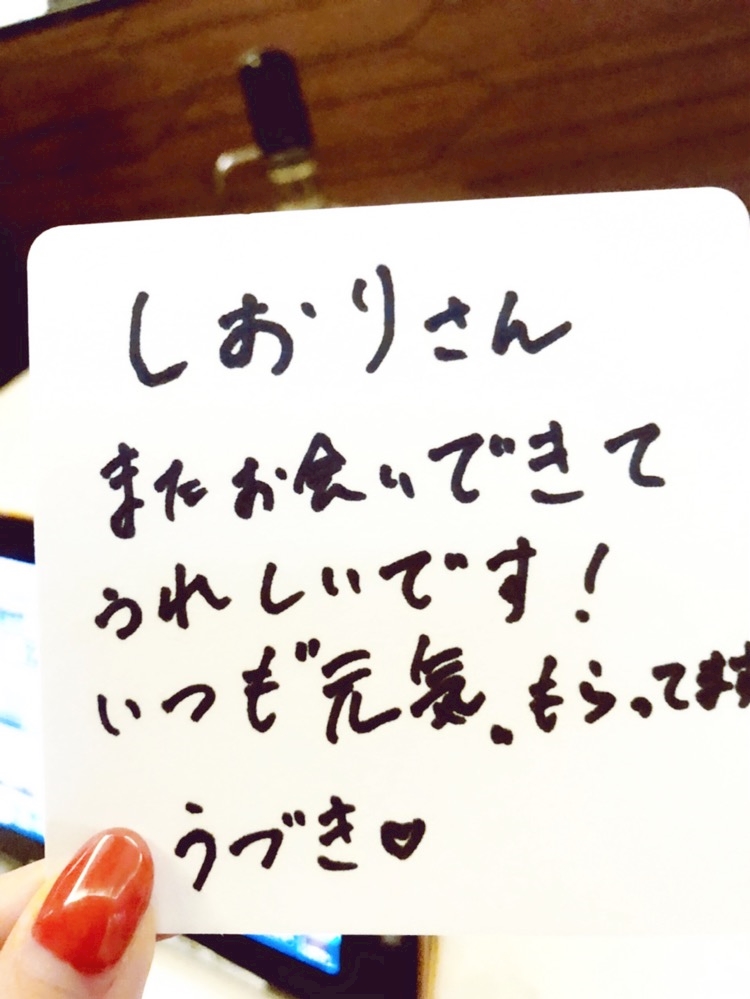 しおりさん
またお会いできて
うれしいです!
いつも"元気〟もらってます
うづき♡